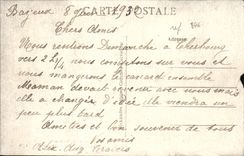 CARTE POSTALE
Bayeux 8 9 1930
Chers Amis
Nous rentrons Dimanche à Cherbourg
vers 2 h ½ nous comptons sur vous et
nous mangerons le canard ensemble
Maman devait venir avec nous mais elle
a changée d'idée elle viendra un
peu plus tard
Amitiés et bon souvenir de tous
Vos amis